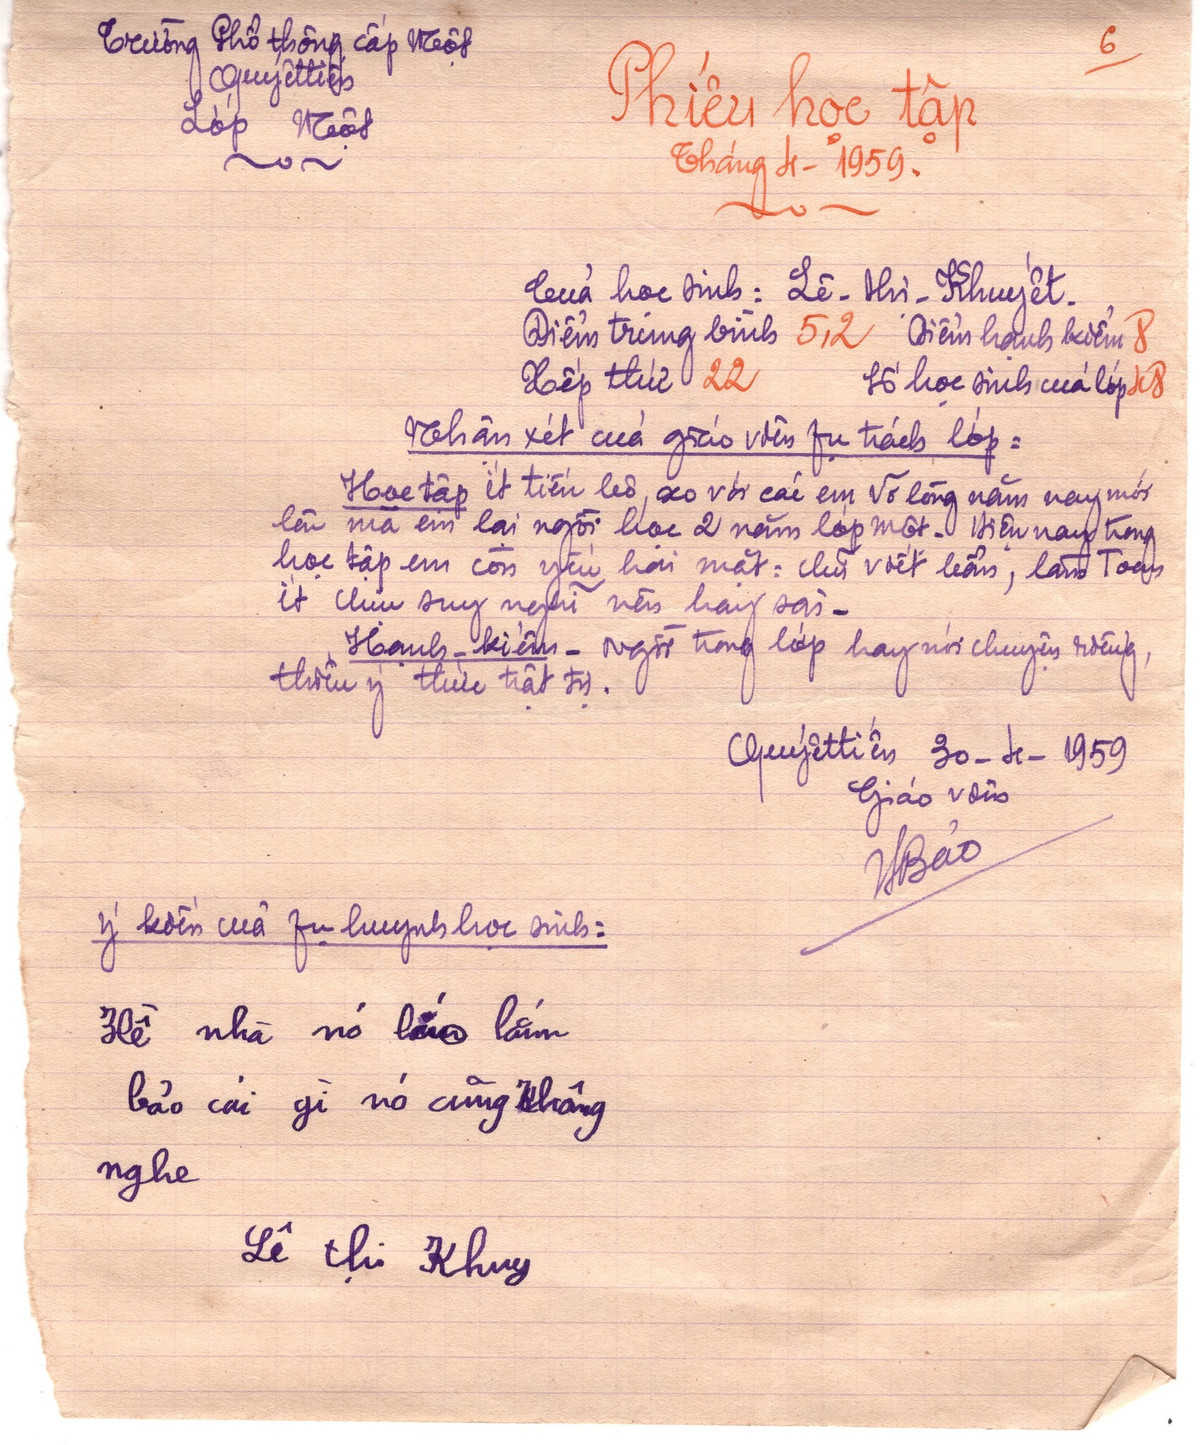 Trường Phổ thông cấp Một
Quyết tiến
Lớp Một
6
Phiếu học tập
Tháng 4 - 1959.
Cuả học sinh : Lê - thị - Khuyết.
Điểm trung bình 5,2 Điểm hạnh kiểm 8
Xếp thứ 22 Số học sinh cuả lớp 48
Nhận xét cuả giáo viên fụ trách lớp :
Học tập ít tiến bộ, so với các em vỡ lòng năm nay mới
lên mà em lại ngồi học 2 năm lớp một. Hiện nay trong
học tập em còn yếu hai mặt : chữ viết bẩn, làm Toán
ít chịu suy nghĩ nên hay sai -
Hạnh - kiểm - Ngồi trong lớp hay nói chuyện riêng,
thiếu ý thức trật tự.
Quyết tiến 30 - 4 - 1959
Giáo viên
VBảo
Ý kiến cuả fụ huynh học sinh :
Hễ nhà nó láo lắm
bảo cái gì nó cũng không
nghe
Lê thị Khuy